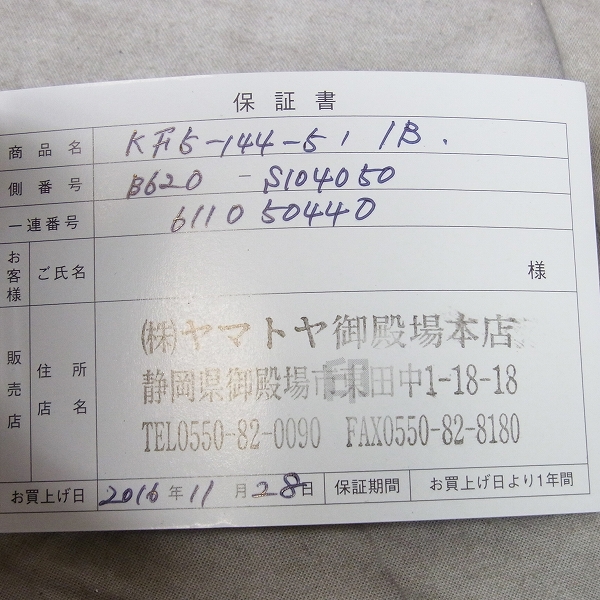 保証書
商品名 KH5-144-51 /B.
側番号 B620 - S104050
一連番号 611050440
お客様 ご氏名 様
販売店 住所 店名
(株)ヤマトヤ御殿場本店
静岡県御殿場市東田中1-18-18
TEL0550-82-0090 FAX0550-82-8180
お買上げ日 2016年11月28日 保証期間 お買上げ日より1年間